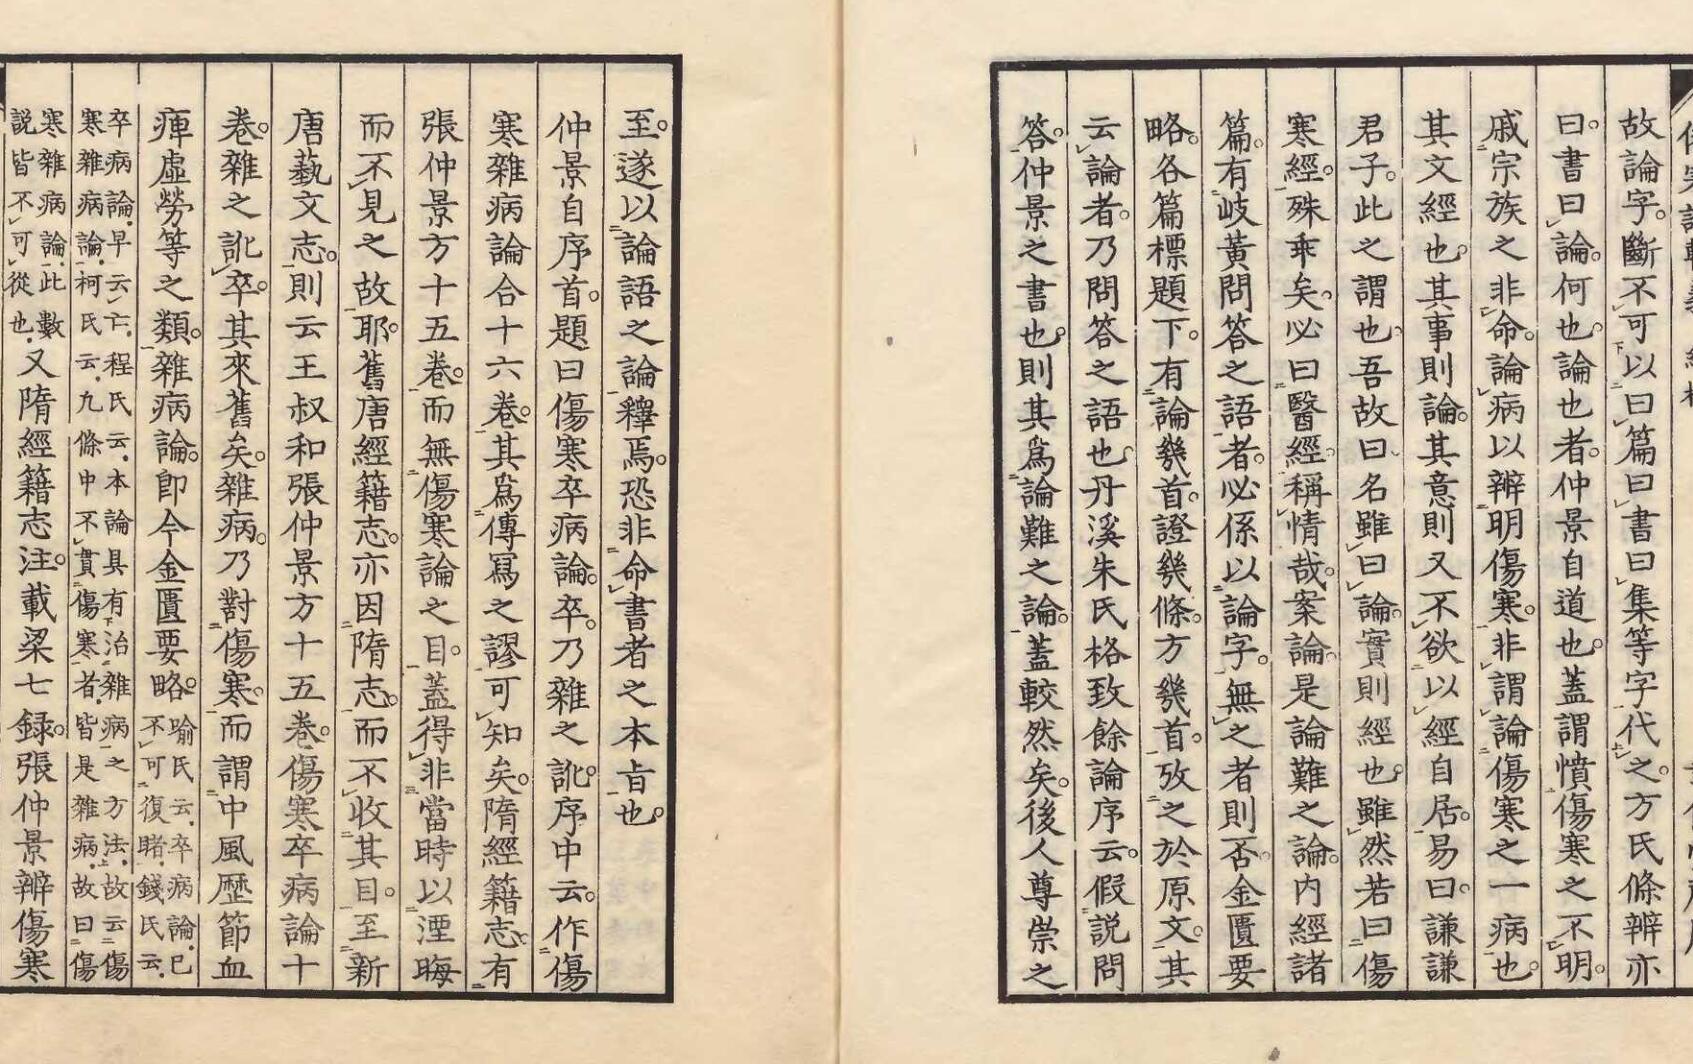 故論字。斷不可以曰篇曰書曰集等字代之。方氏條辨亦
曰。書曰論。何也。論也者。仲景自道也。蓋謂憤傷寒之不明。
戚宗族之非命。論病以辨明傷寒。非謂論傷寒之一病也。
其文經也。其事則論。其意則又不欲以經自居。易曰。謙謙
君子。此之謂也。吾故曰名雖曰論。實則經也。雖然若曰傷
寒經。殊乖矣。必曰醫經。稱情哉。案論是論難之論。内經諸
篇。有岐黃問答之語者。必係以論字。無之者則否。金匱要
略。各篇標題下。有論幾首。證幾條。方幾首。攷之於原文。其
云論者。乃問答之語也。丹溪朱氏格致餘論序云。假説問
答。仲景之書也。則其爲論難之論。蓋較然矣。後人尊崇之
至。遂以論語之論釋焉。恐非命書者之本旨也。
仲景自序。首題曰傷寒卒病論。卒。乃雜之訛。序中云。作傷
寒雜病論合十六卷。其爲傳寫之謬可知矣。隋經籍志。有
張仲景方十五卷。而無傷寒論之目。蓋得非當時以湮晦
而不見之故耶。舊唐經籍志。亦因隋志。而不收其目。至新
唐藝文志。則云王叔和張仲景方十五卷。傷寒卒病論十
卷。雜之訛卒。其來舊矣。雜病。乃對傷寒。而謂中風歷節血
痺虛勞等之類。雜病論。卽今金匱要略。喻氏云。卒病論。已
不可復睹。錢氏云。
卒病論。早云亡。程氏云。本論具有治雜病之方法。故云傷
寒雜病論。柯氏云。九條中不貫傷寒者。皆是雜病。故曰傷
寒雜病論。此數
説皆不可從也。又隋經籍志注。載梁七録。張仲景辨傷寒